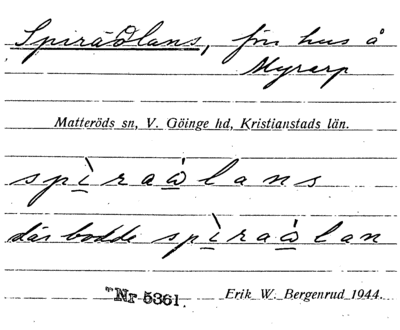 Spiraålans, frn hus å
Myrarp
Matteröds sn, V. Göinge hd, Kristianstads län.
spìraẁlans
där bodde spìraẁlan
Nr 5361. Erik W. Bergenrud 1944.